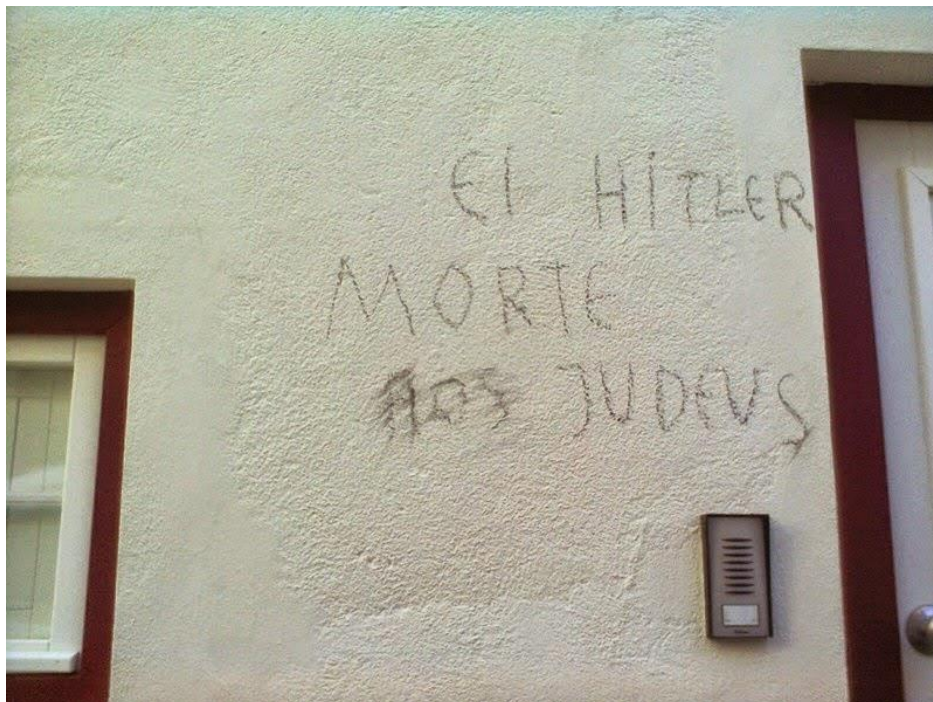 Ei HiTLER
MORTE
AOS JUDEUS